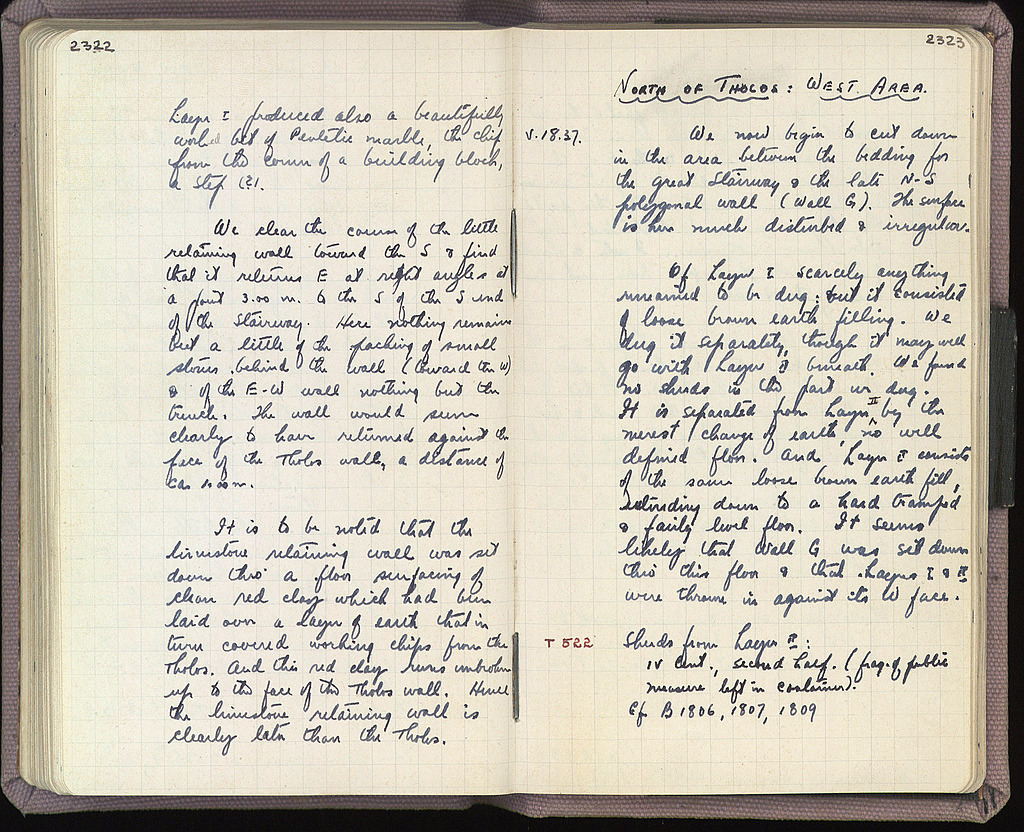 2322
Layer I produced also a beautifully
worked bit of Pentelic marble, the chip
from the corner of a building block,
a step (?).
We clear the course of the little
retaining wall toward the S & find
that it returns E at right angles at
a point 3.00 m. to the S of the S end
of the Stairway. Here nothing remains
but a little of the packing of small
stones behind the wall (toward the W)
& of the E-W wall nothing but the
trench. The wall would seem
clearly to have returned against the
face of the Tholos wall, a distance of
ca. m.
It is to be noted that the
limestone retaining wall was set
down thro' a floor surfacing of
clean red clay which had been
laid over a layer of earth that in
turn covered working chips from the
Tholos. And this red clay runs unbroken
up to the face of the Tholos wall. Hence
the limestone retaining wall is
clearly later than the Tholos.
2323
NORTH OF THOLOS: WEST AREA.
V.18.37.
We now begin to cut down
in the area between the bedding for
the great Stairway & the late N-S
polygonal wall (Wall G). The surface
is here much disturbed & irregular.
Of Layer I scarcely anything
remained to be dug: but it consisted
of loose brown earth filling. We
dug it separately, though it may well
go with Layer II beneath. We found
no sherds in the part we dug.
It is separated from Layer II by the
merest change of earth, no well
defined floor. And Layer II consists
of the same loose brown earth fill,
extending down to a hard tramped
& fairly level floor. It seems
likely that Wall G was set down
thro' this floor & that Layers I & II
were thrown in against its W face.
T 522
Sherds from Layer II:
IV cent., second half. (frag. of public
measure left in container).
Cf. B 1806, 1807, 1809